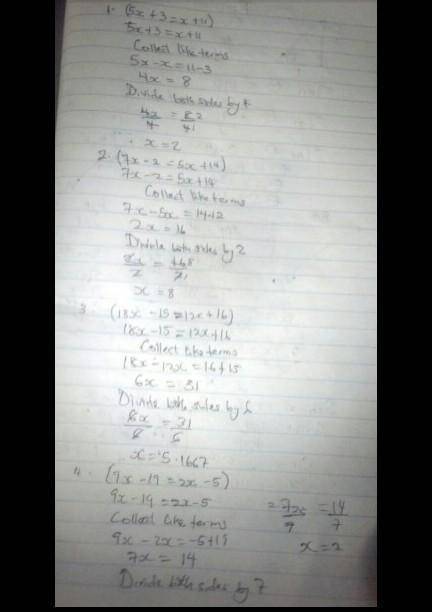 1. (5x+3=x+11)
5x+3=x+11
Collect like terms
5x-x=11-3
4x = 8
Divide both sides by 4
4x/4 = 82/41
x=2
2. (7x-2=5x+14)
7x-2=5x+14
Collect like terms
7x-5x=14+2
2x=16
Divide both sides by 2
2x/2 = 168/21
x=8
3. (18x-15=12x+16)
18x-15=12x+16
Collect like terms
18x-12x=16+15
6x = 31
Divide both sides by 6
6x/6 = 31/6
x=5.1667
4. (9x-19=2x-5)
9x-19=2x-5
Collect like terms
9x-2x=-5+19
7x = 14
Divide both sides by 7
= 14/7
x=2